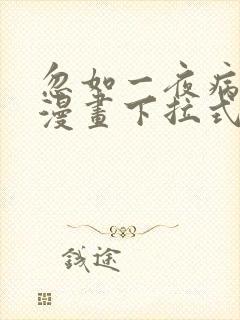 忽如一夜病
漫畫下拉式
錢途